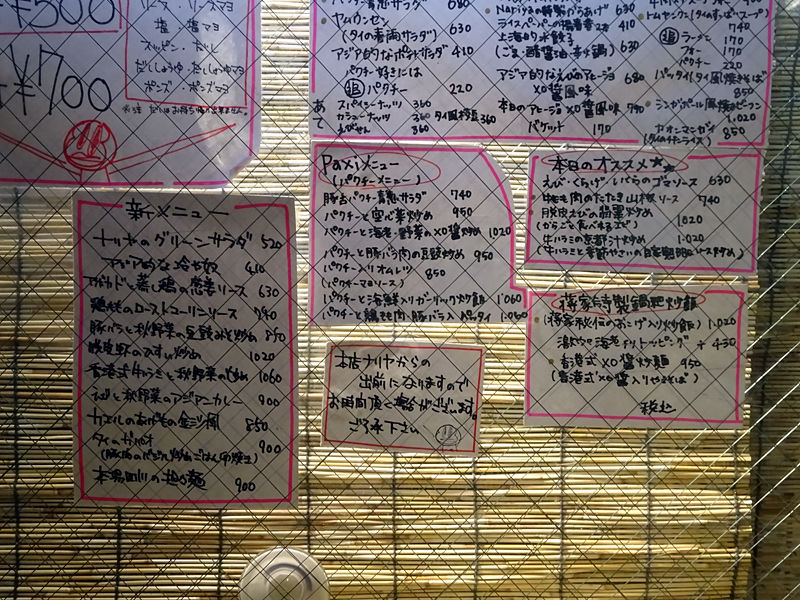 ¥500
¥700
ソース・ソースマヨ
塩・塩マヨ
スッピン・だし
だししょうゆ・だししょうゆマヨ
ポンズ・ポンズマヨ
680
ヤムウンセン
(タイの春雨サラダ) 630
アジア的なポテトサラダ 410
パクチー好きには
追パクチー 220
あて
スパイシーナッツ 360
カシューナッツ 360
えびせん 360
タイ風 360
630
ライスペーパーの 410
上海的水餃子
(ごま・酢醤油・赤鍋) 630
アジア的なえびのアヒージョ 680
XO醤風味
本日のアヒージョXO醤風味 790
バケット 170
トムヤンクン(タイのすっぱスープ)
740
追ラーメン 170
フォー 170
パクチー 220
パッタイ(タイ風焼きそば)
850
シンガポール風焼きビーフン
1,020
カオマンガイ 850
(タイのチキンライス)
Paxiメニュー
(パクチーメニュー)
豚しゃぶパクチーサラダ 740
パクチーと空心菜炒め 950
パクチーと海老・野菜のXO醤炒め 1020
パクチーと豚バラ肉の豆鼓炒め 950
パクチー入りオムレツ 850
(パクチーマヨソース)
パクチーと海鮮入りガーリック炒飯 1,060
パクチーと鶏もも肉・豚バラ入パッタイ 1,060
本日のオススメ★★
えび・くらげ・いちぢくのゴマソース 630
牛もも肉のたたき山椒ソース 740
脱皮えびの香草炒め
(からごと食べるエビ) 1020
牛ハラミの京都汁炒め 1,020
新メニュー
ナッツのグリーンサラダ 520
アジア的な冷奴 410
アボカドと蒸し鶏の恋姜ソース 630
鶏ももローストユーリンソース
豚バラと秋野菜の豆鼓みそ炒め 850
1020
香港式牛うまと秋野菜の炒め 1060
えびと秋野菜のアジアンカレー 900
カエルのあげもの金沙楓 850
タイのガパオ 900
(豚肉のバジル炒めごはん卵焼き)
本場四川の担々麺 900
蒋家特製鍋肥炒飯
(蒋家秘伝のおこげ入り炒飯) 1,020
激ウマ海老チリトッピング + 430
香港式XO醤炒麺 950
(香港式XO醤入りやきそば)
税込
本店ナリヤからの
出前になりますので
お時間頂く場合がございます。
ご了承下さい